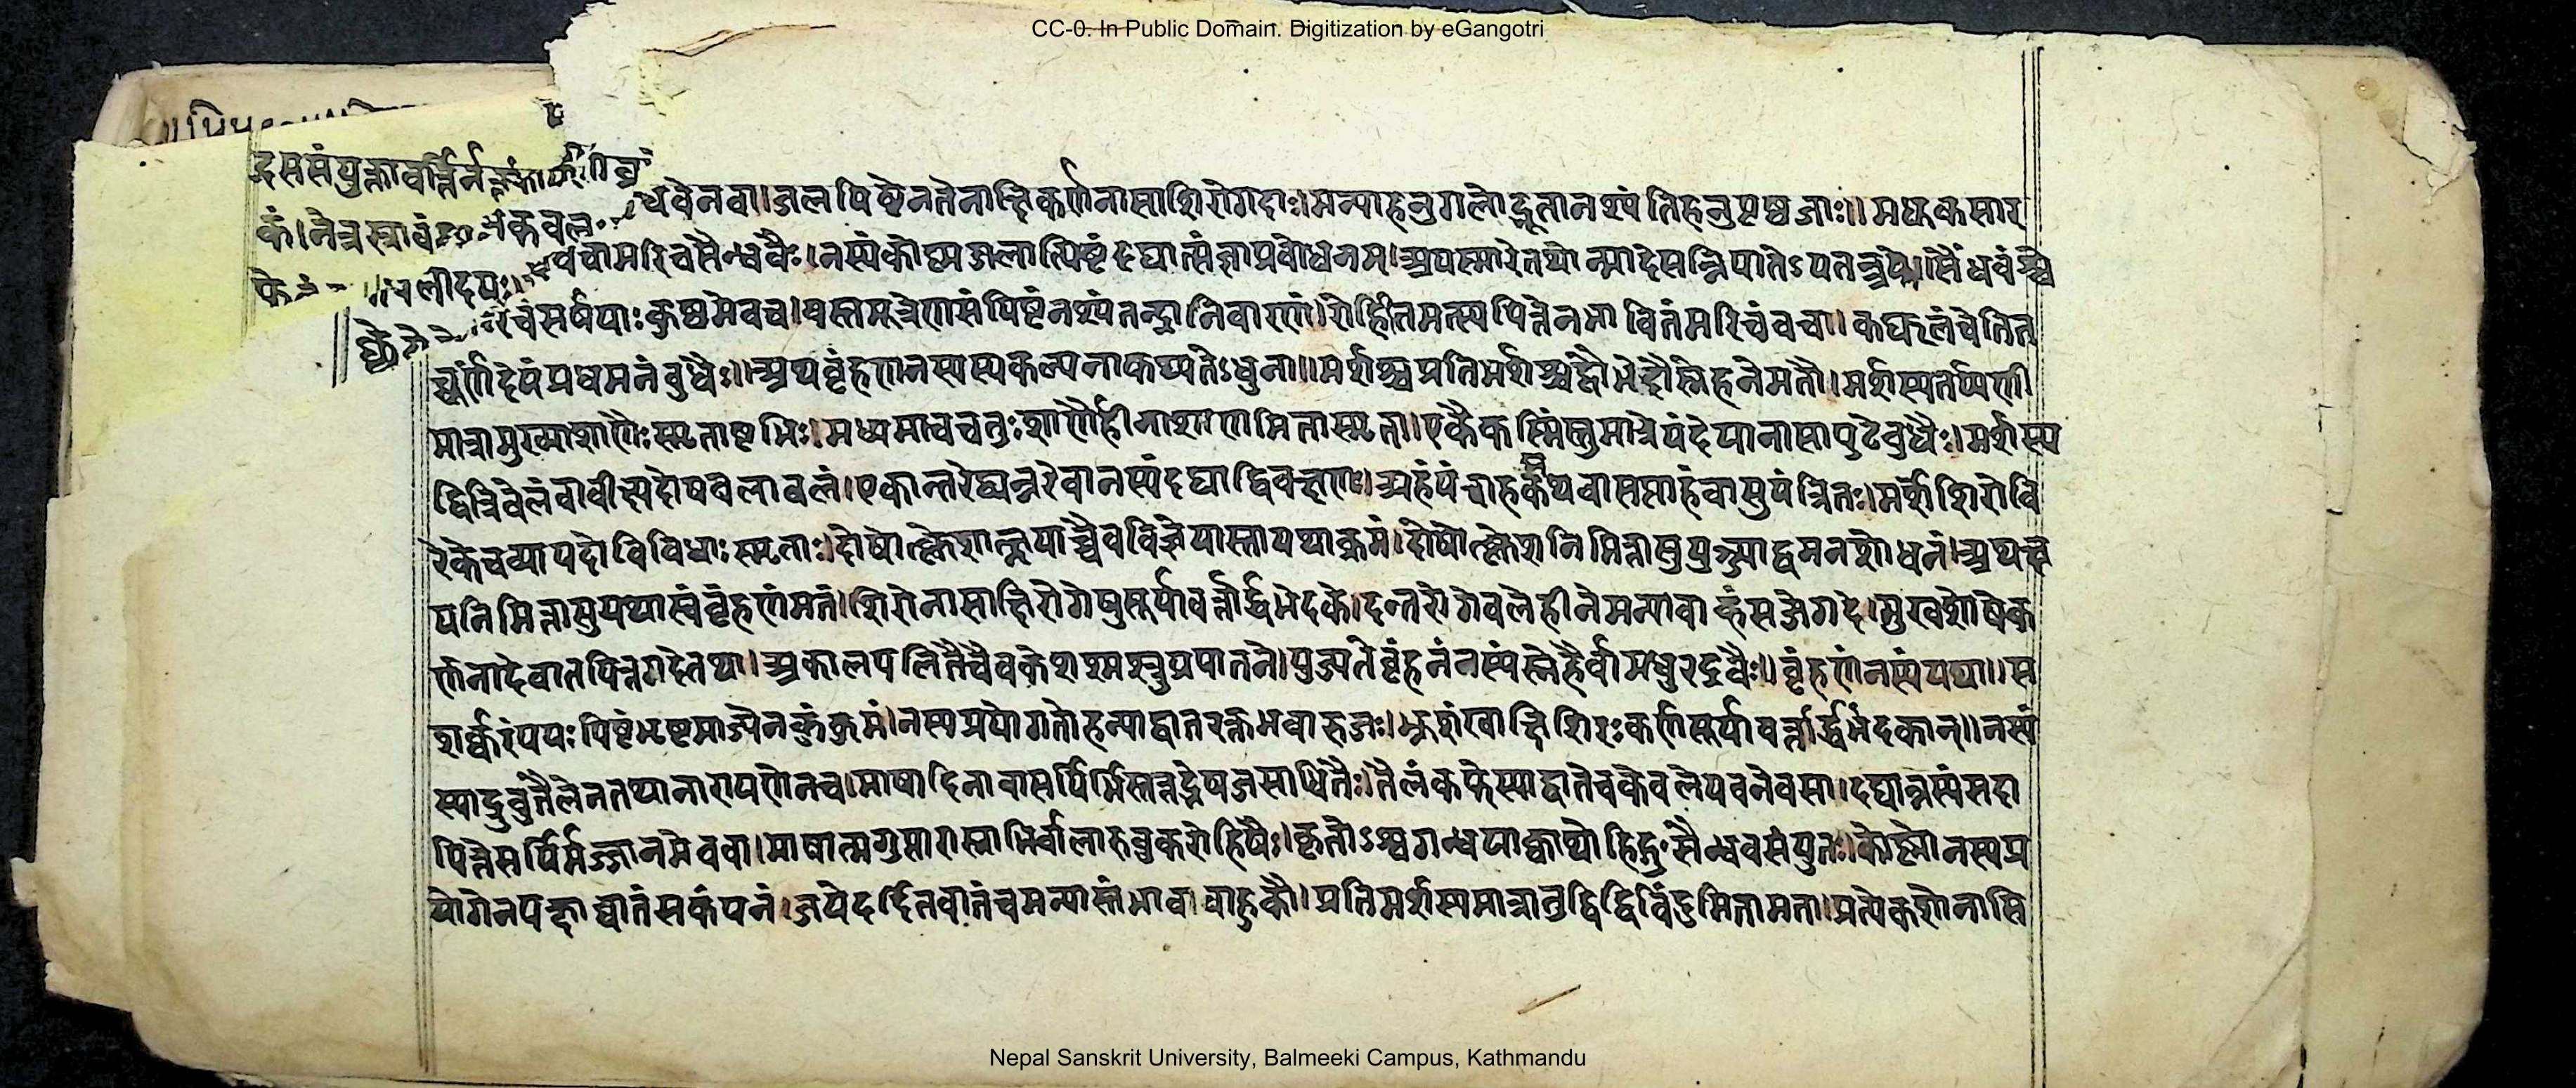 CC-0. In Public Domain. Digitization by eGangotri
द्रससंयुक्तावर्त्ति
कं।नेत्रस्त्रावं
लीढयः
धवेनवा।जलपिष्टेनतेनाक्षिकर्णनासाशिरोगदाः।मन्याहनुगलोद्भूतानश्यंतिहनुपृष्ठजाः॥मधूकसार
वचामरिचसैन्धवैः।नस्यंकोष्णजलात्पिष्टंदद्यात्संज्ञाप्रवोधनम्।अपस्मारेतथोन्मादेसन्निपातेऽपतन्त्रके॥सैंधवंश्वे
रिचंसर्षपाःकुष्ठमेवच।वस्तमूत्रेणसंपिष्टंनश्यंतन्द्रानिवारणं।रोहितमत्स्यपित्तेनभावितंमरिचंवचा।कट्फलंचेतित
च्चूर्णंदेयंप्रधमनंवुधैः॥अथवृंहणनस्यस्यकल्पनाकथ्यतेऽधुना॥मर्शश्चप्रतिमर्शश्चद्वौभेदौस्नेहनेमतौ।मर्शस्यतर्प्पणी
मात्रामुख्याशाणैःस्मृताष्टभिः।मध्यमाचचतुःशाणैर्हीनाशाणमितास्मृता।एकैकस्मिंस्तुमात्रेयंदेयानासापुटेवुधैः।मर्शस्य
द्वित्रिवेलंवावीक्ष्यदोषवलावलं।एकान्तरंद्व्यन्तरंवानस्यंदद्याद्विचक्षणः।त्र्यहंपंचाहकंथवासप्ताहंवासुयंत्रितः।मर्शेशिरोवि
रेकेचव्यापदोविविधाःस्मृताः।दोषोत्क्लेशात्क्षयाच्चैवविज्ञेयास्तायथाक्रमं।दोषोत्क्लेशनिमित्तासुयुञ्ज्याद्वमनशोधनं।अथक्ष
यनिमित्तासुयथास्वंवृंहणंमतं।शिरोनासाक्षिरोगेषुसूर्यावर्त्तार्द्धभेदके।दन्तरोगेवलेहीनेमन्यावाह्वंसजेगदे।मुखशोषेक
र्णनादेवातपित्तगदेतथा।अकालपलितेचैवकेशश्मश्रुप्रपातने।युज्यतेवृंहनंनस्यंस्नेहैर्वामधुरद्रवैः॥वृंहणंनस्यंयथा॥स
शर्क्करंपयःपिष्टंभृष्टमाज्येनकुंकुमं।नस्यप्रयोगतोहन्याद्वातरक्तभवारुजः।भ्रूशंखाक्षिशिरःकर्णसूर्यावर्त्तार्द्धभेदकान्॥नस्यं
स्यादणुतैलेनतथानारायणेनच।माषादिनावासर्पिर्भिस्तत्तद्भेषजसाधितैः।तैलंकफेस्याद्वातेचकेवलेपवनेवसा।दद्यान्नस्यंसदा
पित्तेसर्पिर्मज्जानमेववा।माषात्मगुप्तारास्नाभिर्वलारुवुकरोहिषैः।कृतोऽश्वगन्धयाक्वाथोहिङ्गुसैन्धवसंयुतः।कोष्णोनस्यप्र
योगेनपक्षाघातंसकंपनं।जयेदर्दितवातंचमन्यास्तंभावाबाहुकौ।प्रतिमर्शस्यमात्रातुद्विद्विविंदुमितामता।प्रत्येकशोनासि
Nepal Sanskrit University, Balmeeki Campus, Kathmandu